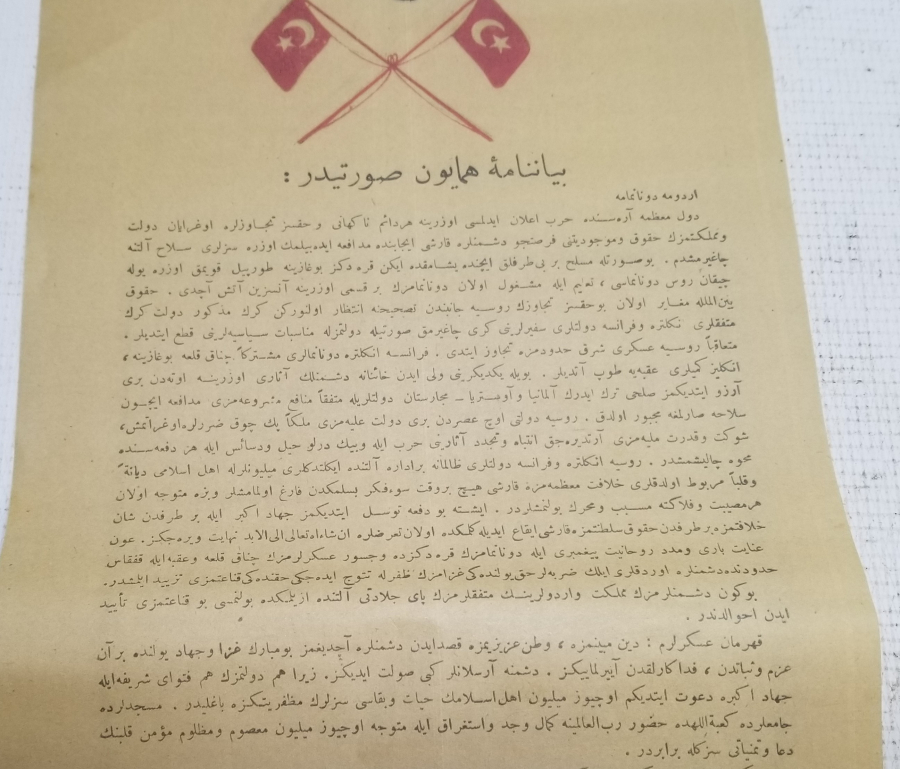 بياننامهٔ همايون صورتيدر :
اردومه دونانمامه
دول معظمه آره‌سنده حرب اعلان ايدلمسى اوزرينه هردائم ناكهانى و حقسز تجاوزلره اوغرايان دولت
ومملكتمزك حقوق وموجوديتنى فرصتجو دشمنلره قارشى ايجابنده مدافعه ايده‌بيلمك اوزره سزلرى سلاح آلتنه
چاغيرمشدم . بوصورتله مسلح بر بى‌طرفلق ايچنده يشامقده ايكن قره دكز بوغازينه طورپيل قويمق اوزره يوله
چيقان روس دونانماسى ، تعليم ايله مشغول اولان دونانمامزك بر قسمى اوزرينه آنسزين آتش آچدى . حقوق
بين‌الملله مغاير اولان بوحقسز تجاوزك روسيه جانبندن تصحيحنه انتظار اولنوركن كرك مذكور دولت كرك
متفقلرى انكلتره وفرانسه دولتلرى سفيرلرينى كرى چاغيرمق صورتيله دولتمزله مناسبات سياسيه‌لرينى قطع ايتديلر .
متعاقباً روسيه عسكرى شرق حدودمزه تجاوز ايتدى . فرانسه انكلتره دونانمالرى مشتركاً چناق قلعه بوغازينه ،
انكليز كميلرى عقبه‌يه طوپ آتديلر . بويله يكديكرينى ولى ايدن خائنانه دشمنلك آثارى اوزرينه اوته‌دن برى
آرزو ايتديكمز صلحى ترك ايدرك آلمانيا وآوستريا ـ مجارستان دولتلريله متفقاً منافع مشروعه‌مزى مدافعه ايچون
سلاحه صارلمغه مجبور اولدق . روسيه دولتى اوچ عصردن برى دولت عليه‌مزى ملكاً پك چوق ضررلره اوغراتمش،
شوكت وقدرت مليه‌مزى آرتديره‌جق انتباه وتجدد آثارينى حرب ايله وبيك درلو حيل ودسائس ايله هر دفعه‌سنده
محوه چاليشمشدر . روسيه انكلتره وفرانسه دولتلرى ظالمانه براداره آلتنده ايكلتدكلرى ميليونلرله اهل اسلامى ديانةً
وقلباً مربوط اولدقلرى خلافت معظمه‌مزه قارشى هيچ بروقت سوءفكر بسلمكدن فارغ اولمامشلر وبزه متوجه اولان
هرمصيبت وفلاكته مسبب ومحرك بولنمشلردر . ايشته بو دفعه توسل ايتديكمز جهاد اكبر ايله بر طرفدن شان
خلافتمزه برطرفدن حقوق سلطنتمزه قارشى ايقاع ايديله‌كلمكده اولان تعرضلره ان‌شاءالله‌تعالى الى‌الابد نهايت ويره‌جكز. عون
عنايت بارى ومدد روحانيت پيغمبرى ايله دونانمامزك قره دكزده وجسور عسكرلرمزك چناق قلعه وعقبه ايله قفقاس
حدودنده دشمنلره اوردقلرى ايلك ضربه‌لر حق يولنده‌كى غزامزك ظفرله تتوج ايده‌جكى حقنده‌كى قناعتمزى تزييد ايلمشدر.
بوكون دشمنلرمزك مملكت واردولرينك متفقلرمزك پاى جلادتى آلتنده ازيلمكده بولنمسى بو قناعتمزى تأييد
ايدن احوالدندر .
قهرمان عسكرلرم : دين مبينمزه ، وطن عزيزيمزه قصدايدن دشمنلره آچديغمز بومبارك غزا وجهاد يولنده برآن
عزم وثباتدن ، فداكارلقدن آيرلمايكز . دشمنه آرسلانلر كبى صولت ايديكز. زيرا هم دولتمزك هم فتواى شريفه‌ايله
جهاد اكبره دعوت ايتديكم اوچيوز ميليون اهل‌اسلامك حيات وبقاسى سزلرك مظفريتكزه باغليدر . مسجدلرده
جامعلرده كعبةاللهده حضور رب‌العالمينه كمال وجد واستغراق ايله متوجه اوچيوز ميليون معصوم ومظلوم مؤمن قلبنك
دعا وتمنياتى سزكله برابردر .